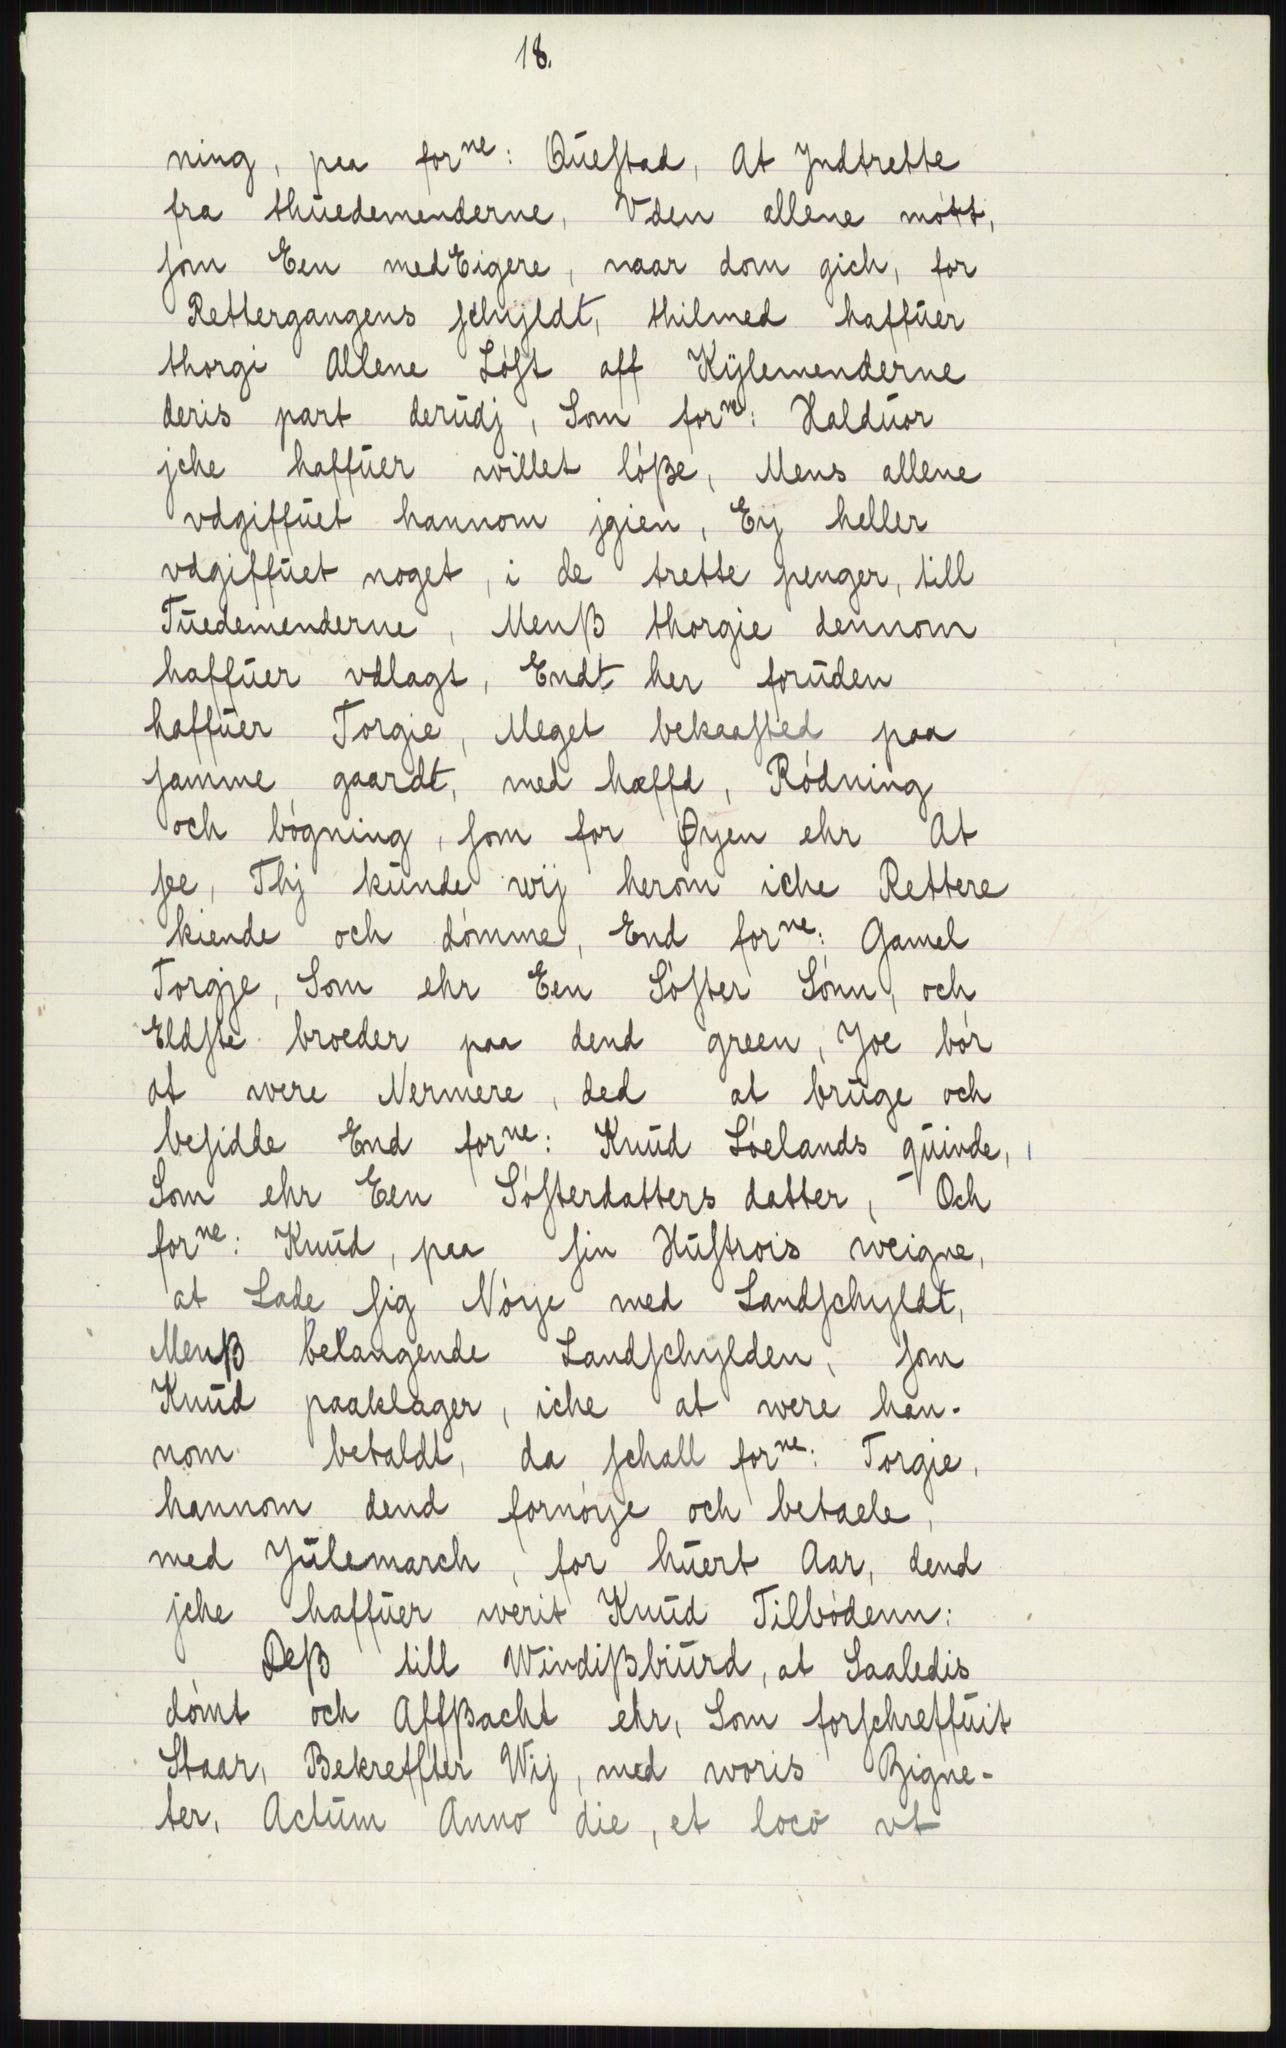 18.
ning, paa for^ne: Questad, At Jndtrette
fra thuedemenderne, Vden allene mött,
som Een medEigere, naar dom gich, for
Rettergangens schyldt, thilmed haffuer
thorgi Allene Löst aff Kÿlemenderne
deris part derudj, Som for^ne: Halduor
jche haffuer willet löße, Mens allene
vdgiffuet hannom jgien, Eÿ heller
vdgiffuet noget, i de trette penger, till
Tuedemenderne, Menß thorgie dennom
haffuer vdlagt, Endt her foruden
haffuer Torgie, Meget bekaasted paa
samme gaardt, med hæffd, Rödning
och bögning, som for Øyen ehr At
see, Thj kunde wij herom iche Rettere
kiende och dömme, End for^ne: Gamel
Torgje, Som ehr Een Söster Sönn, och
Eldste broeder paa dend green, Joe bör
at were Nermere, ded at bruge och
besidde End for^ne: Knud Löelands quinde,
Som ehr Een Sösterdatters datter, Och
for^ne: Knud, paa sin Hustrois weigne,
at Lade sig Nöye med Landschyldt,
Menß belangende Landschylden, som
Knud paaklager, iche at were han-
nom betaldt, da schall for^ne: Torgie,
hannom dend fornöye och betaele,
med Julemarch, for huert Aar, dend
jche haffuer werit Knud Tilbödenn:
Deß till Windißbiurd, at Saaledis
dömt och Affßacht ehr, Som forschreffuit
Staar, Bekreffter Wij, med woris Zigne-
ter, Actum Anno die, et loco vt